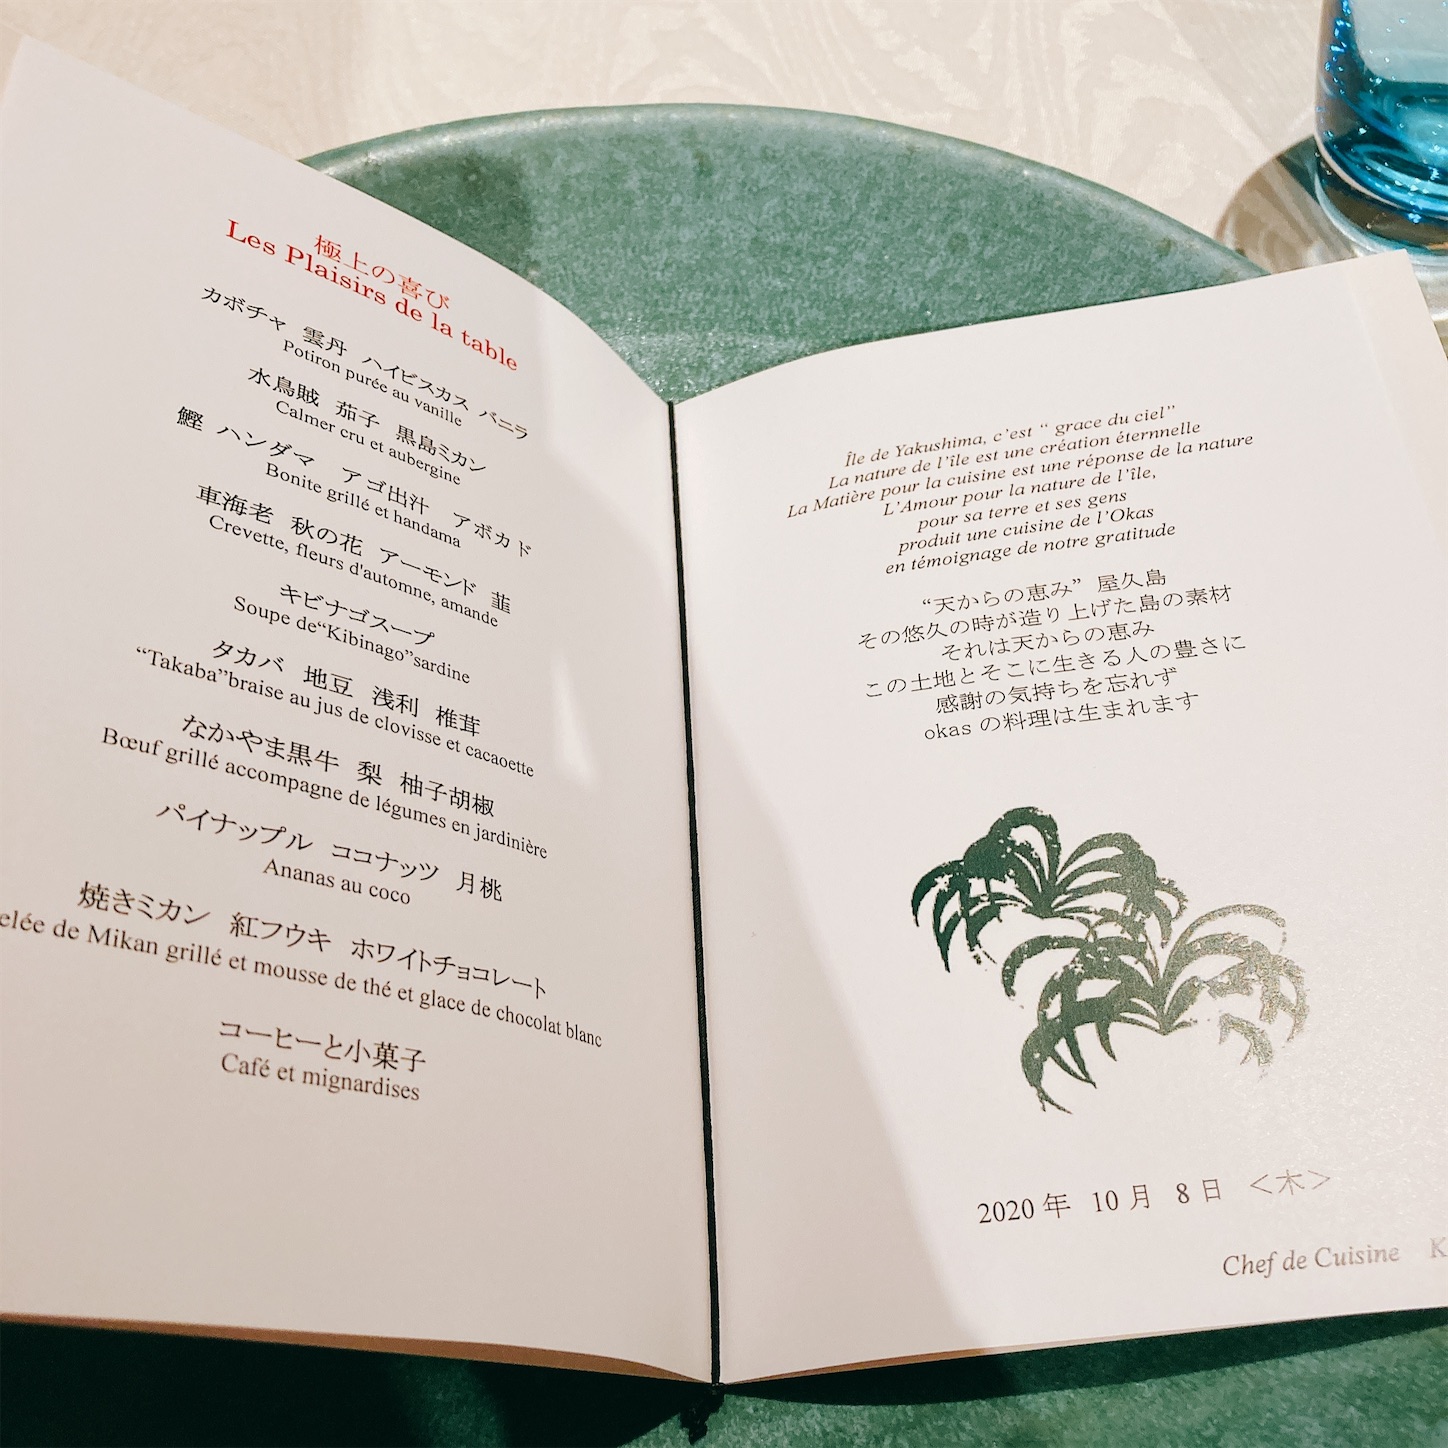 極上の喜び
Les Plaisirs de la table
カボチャ 雲丹 ハイビスカス バニラ
Potiron purée au vanille
水烏賊 茄子 黒島ミカン
Calmer cru et aubergine
鰹 ハンダマ アゴ出汁 アボカド
Bonite grillé et handama
車海老 秋の花 アーモンド 韮
Crevette, fleurs d'automne, amande
キビナゴスープ
Soupe de“Kibinago”sardine
タカバ 地豆 浅利 椎茸
“Takaba”braise au jus de clovisse et cacaoette
なかやま黒牛 梨 柚子胡椒
Bœuf grillé accompagne de légumes en jardinière
パイナップル ココナッツ 月桃
Ananas au coco
焼きミカン 紅フウキ ホワイトチョコレート
elée de Mikan grillé et mousse de thé et glace de chocolat blanc
コーヒーと小菓子
Café et mignardises
Île de Yakushima, c'est “ grace du ciel”
La nature de l'île est une création éternnelle
La Matière pour la cuisine est une réponse de la nature
L'Amour pour la nature de l'île,
pour sa terre et ses gens
produit une cuisine de l'Okas
en témoignage de notre gratitude
“天からの恵み” 屋久島
その悠久の時が造り上げた島の素材
それは天からの恵み
この土地とそこに生きる人の豊さに
感謝の気持ちを忘れず
okas の料理は生まれます
2020 年 10 月 8 日 <木>
Chef de Cuisine K